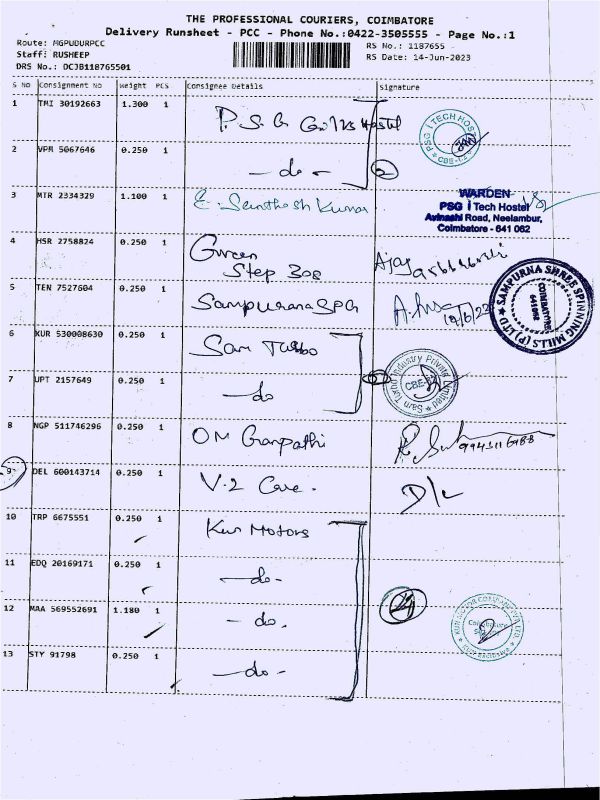 THE PROFESSIONAL COURIERS, COIMBATORE
Delivery Runsheet - PCC - Phone No.:0422-3505555 - Page No.:1
Route: MGPUDURPCC
RS No.: 1187655
Staff: RUSHEEP
RS Date: 14-Jun-2023
DRS No.: DCJB118765501
S No Consignment No Weight PCS Consignee Details Signature
1 TMI 30192663 1.300 1 P.S.G Girls Hostel
PSG iTECH HOSTEL
CBE-62
2 VPM 5067646 0.250 1 - do -
3 MTR 2334329 1.100 1 E. Santhosh Kumar
WARDEN
PSG i Tech Hostel
Avinashi Road, Neelambur,
Coimbatore - 641 062
4 HSR 2758824 0.250 1 Green
Step 308
Ajay
5 TEN 7527604 0.250 1 Sampurana SPG
SAMPURNA SHREE SPINNING MILLS (P) LTD
COIMBATORE
641 062
6 KUR 530008630 0.250 1 Sam Turbo
7 UPT 2157649 0.250 1 - do
Sam Turbo Industry Private Limited
CBE-62
8 NGP 511746296 0.250 1 OM Ganpathi
9 DEL 600143714 0.250 1 V.2 Care.
D/L
10 TRP 6675551 0.250 1 Kun Motors
11 EDQ 20169171 0.250 1 - do -
12 MAA 569552691 1.180 1 - do.
KUN MOTOR COMPANY PVT LTD
Coimbatore
13 STY 91798 0.250 1 - do -